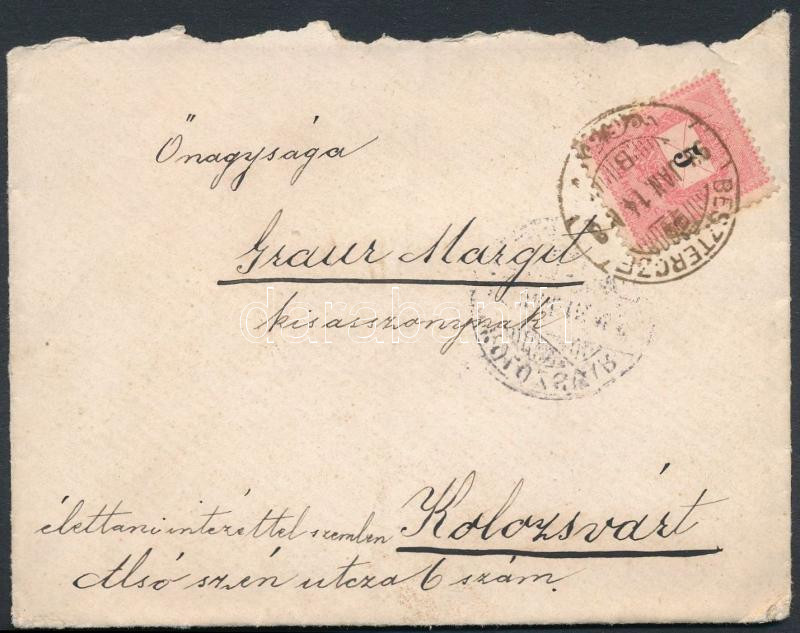 Őnagysága
Graur Margit
kisasszonynak
élettani intézettel szemben Kolozsvárt
Alsó szén utcza 6 szám.
5
BESZTERCZE
JAN. 14
KOLOZSVÁR
darabanth.com